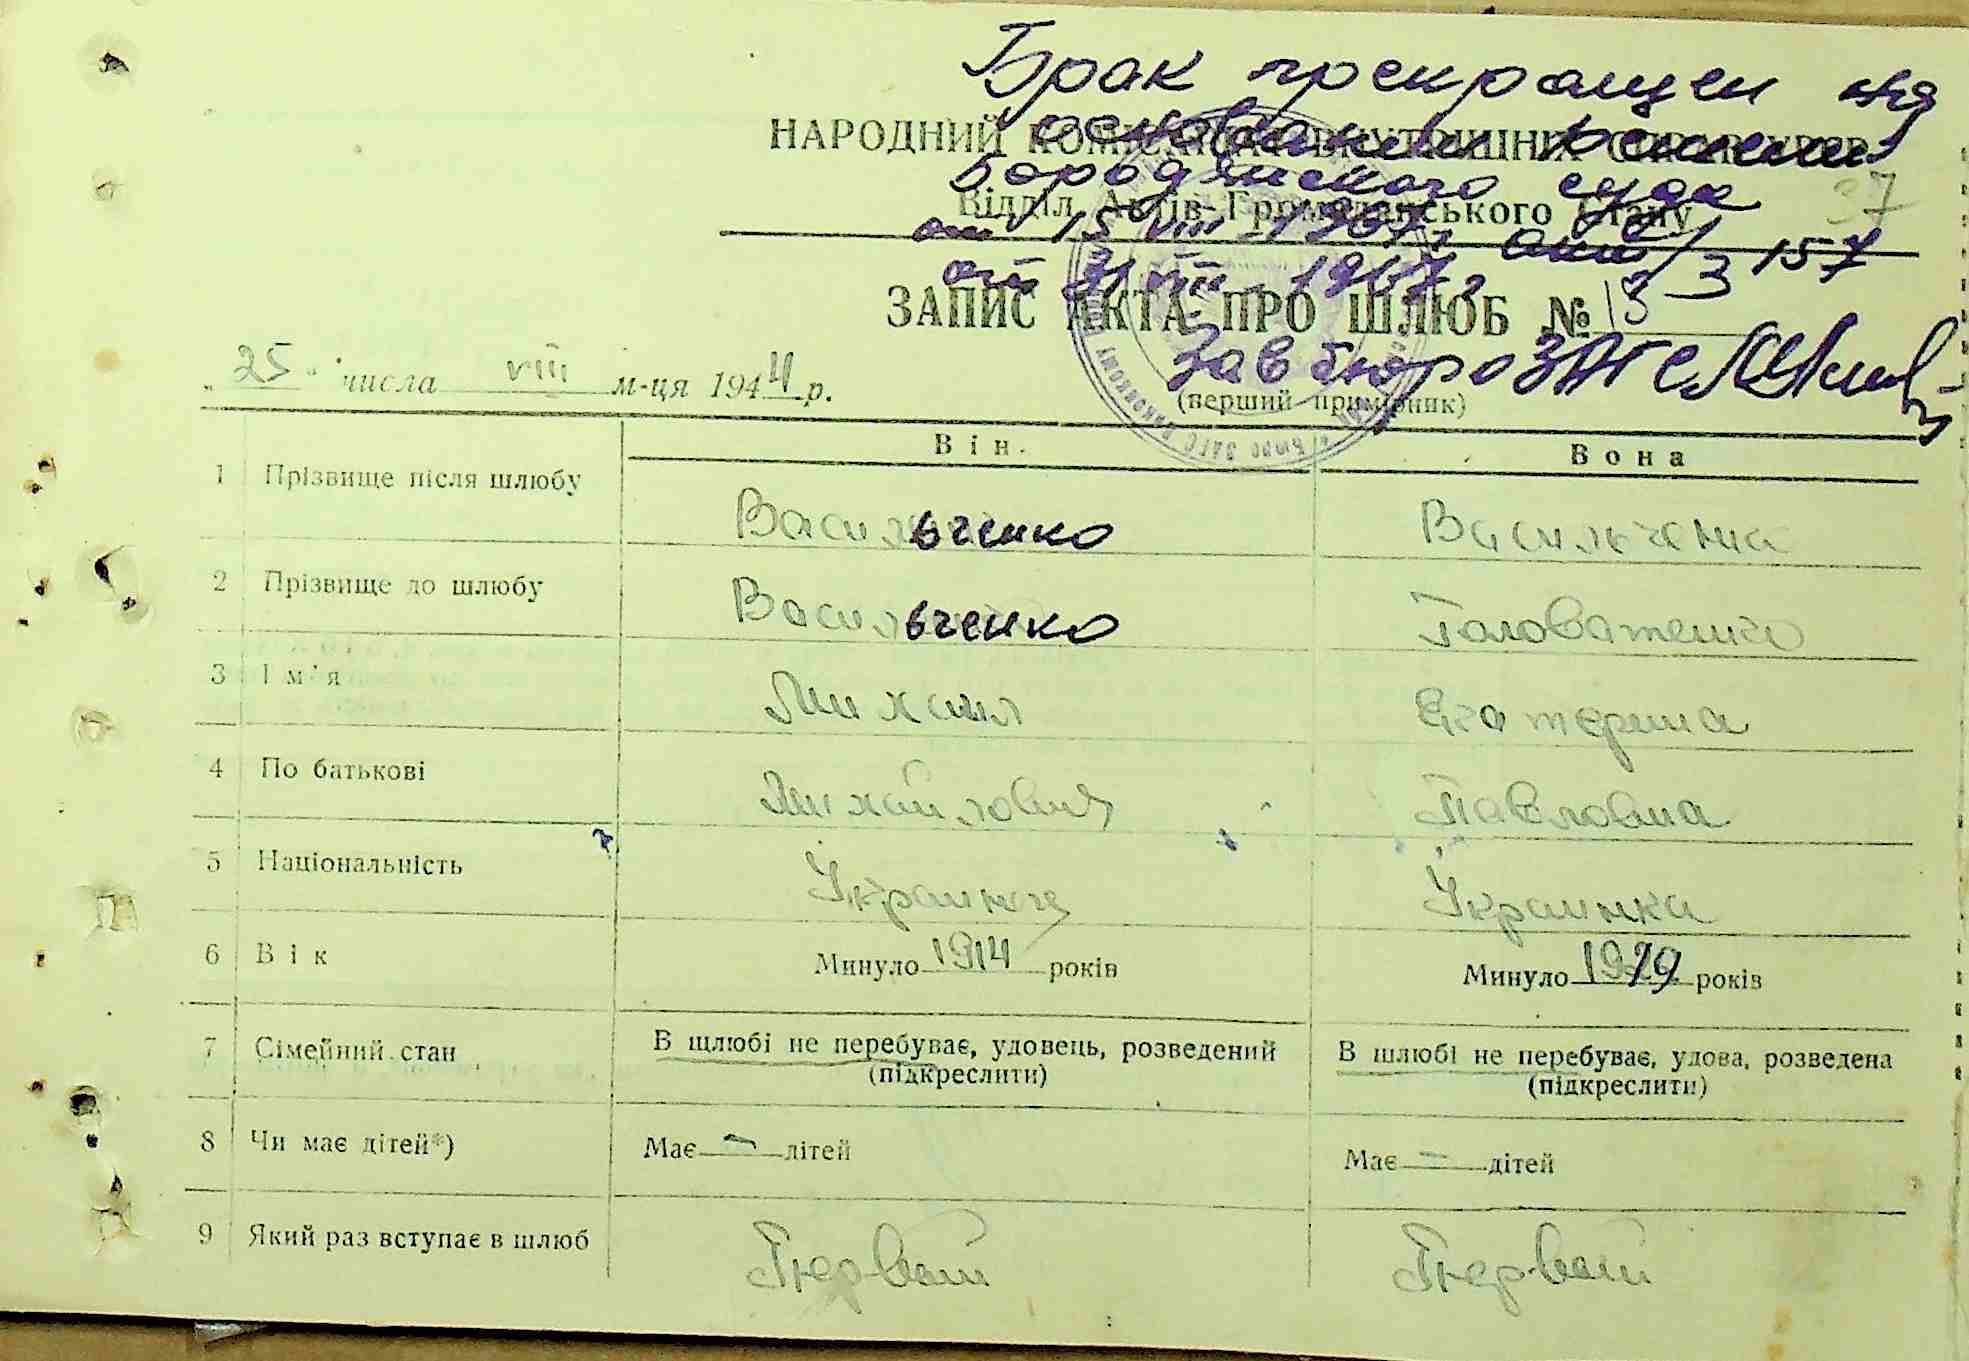 Брак прекращен на
основании решения
Бородянского суда
от 15 VIII 1967г. акт 157
от 31 VIII 1967г.
Зав бюро ЗАГС
НАРОДНИЙ КОМІСАРІАТ ВНУТРІШНІХ СПРАВ УРСР
37
Відділ Актів Громадянського Стану
ЗАПИС АКТА ПРО ШЛЮБ № 13
„25“ числа VIII м-ця 1944 р.
(перший примірник)
Він. Вона
1 Прізвище після шлюбу Васильченко Васильченко
2 Прізвище до шлюбу Васильченко Головатенко
3 Ім'я Михаил Екатерина
4 По батькові Михайлович Павловна
5 Національність Украинец Украинка
6 Вік Минуло 1914 років Минуло 1919 років
7 Сімейний стан В шлюбі не перебуває, удовець, розведений В шлюбі не перебуває, удова, розведена
(підкреслити) (підкреслити)
8 Чи має дітей*) Має — дітей Має — дітей
9 Який раз вступає в шлюб Первый Первый